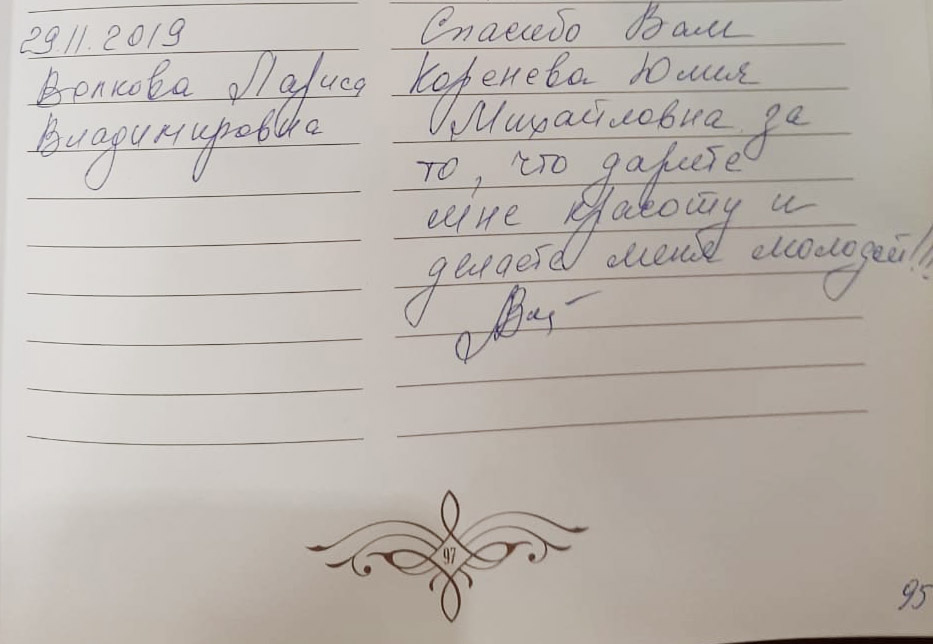 29.11.2019
Волкова Лариса
Владимировна
Спасибо Вам
Коренева Юлия
Михайловна за
то, что дарите
мне красоту и
делаете меня молодой!!!
97
95